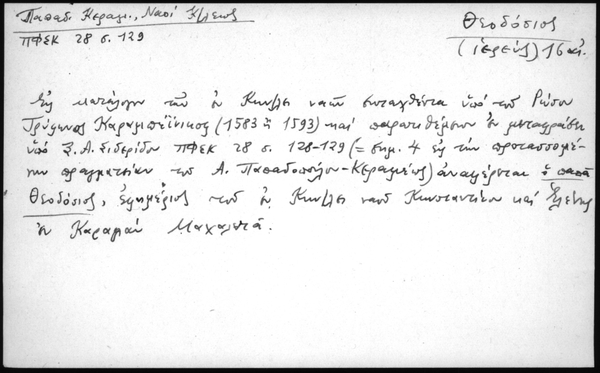 Παπαδ. Κεραμ., Ναοί Κ/λεως
ΠΦΕΚ 28 σ. 129
Θεοδόσιος
(ἱερεύς) 16 αἰ.
Εἰς κατάλογον τῶν ἐν Κων/λει ναῶν συνταχθέντα ὑπό τοῦ Ρώσου
Τρύφωνος Καραμπεϊνικος (1583 ἤ 1593) καί παρατιθέμενον ἐν μεταφράσει
ὑπό Ξ. Α. Σιδερίδου ΠΦΕΚ 28 σ. 128-129 (= σημ. 4 εἰς τήν προτασσομέ-
νην πραγματείαν τοῦ Α. Παπαδοπούλου-Κεραμέως) ἀναφέρεται ὁ παπᾶ
Θεοδόσιος, ἐφημέριος τοῦ ἐν Κων/λει ναοῦ Κωνσταντίνου καί Ἑλένης
ἐν Καραμάν Μαχαλεσᾶ.